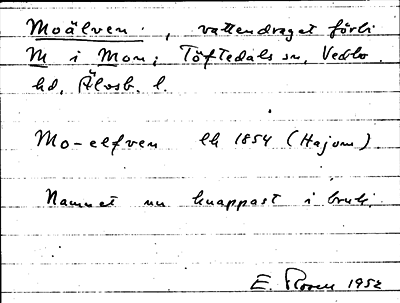 Moälven, vattendraget förbi
M i Mon; Töftedals sn, Vedbo
hd, Älvsb. l.
Mo-elfven lk 1854 (Hajom)
Namnet nu knappast i bruk.
E. 1952